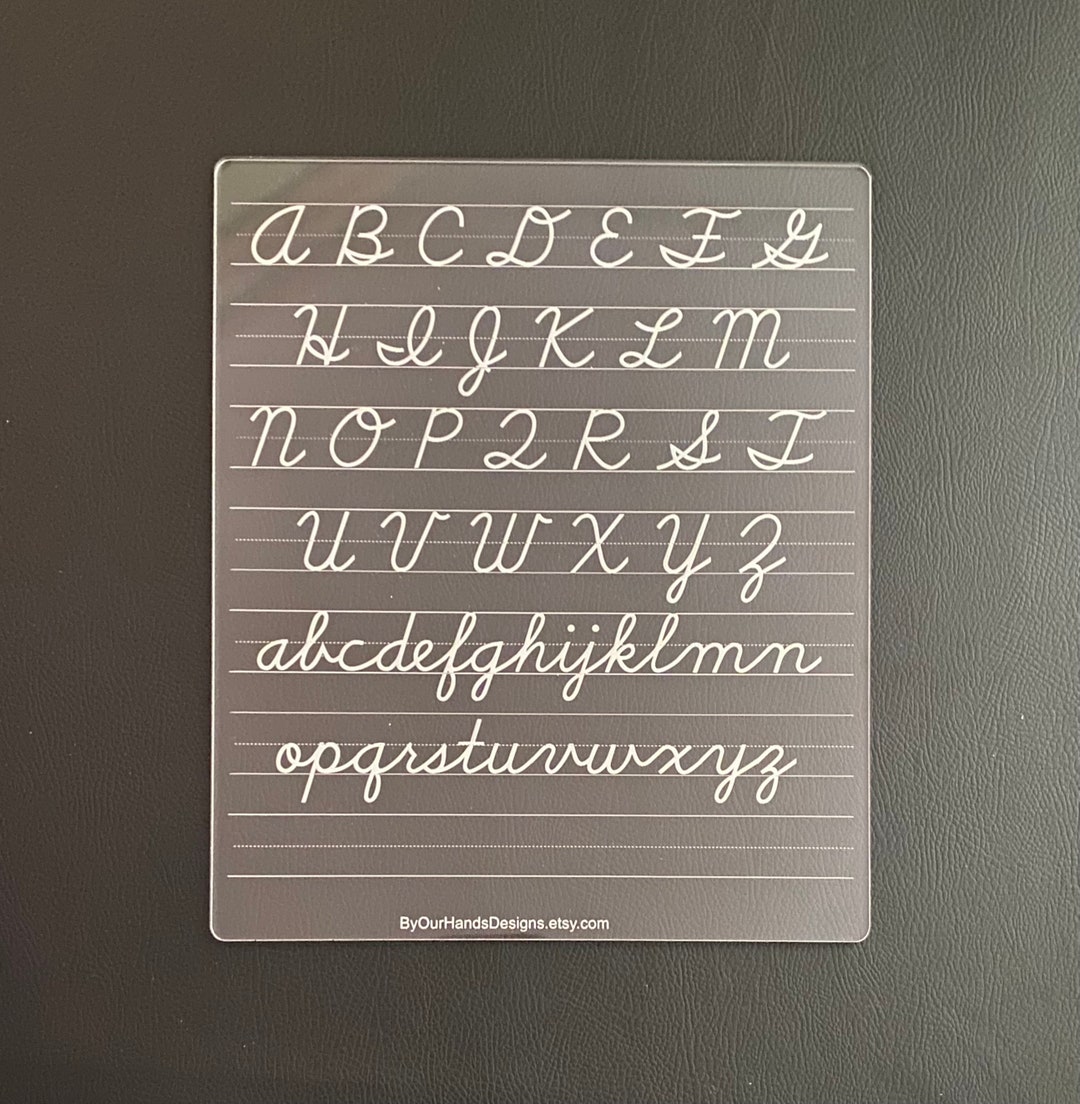 A B C D E F G
H I J K L M
N O P Q R S T
U V W X Y Z
abcdefghijklmn
opqrstuvwxyz
ByOurHandsDesigns.etsy.com